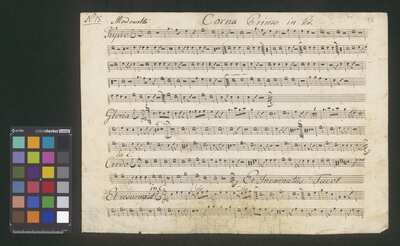 No 15. Moderato Corno Primo in
Kyrie
Gloria
Credo
Et Incarnatus Tacet
Et resurrexit